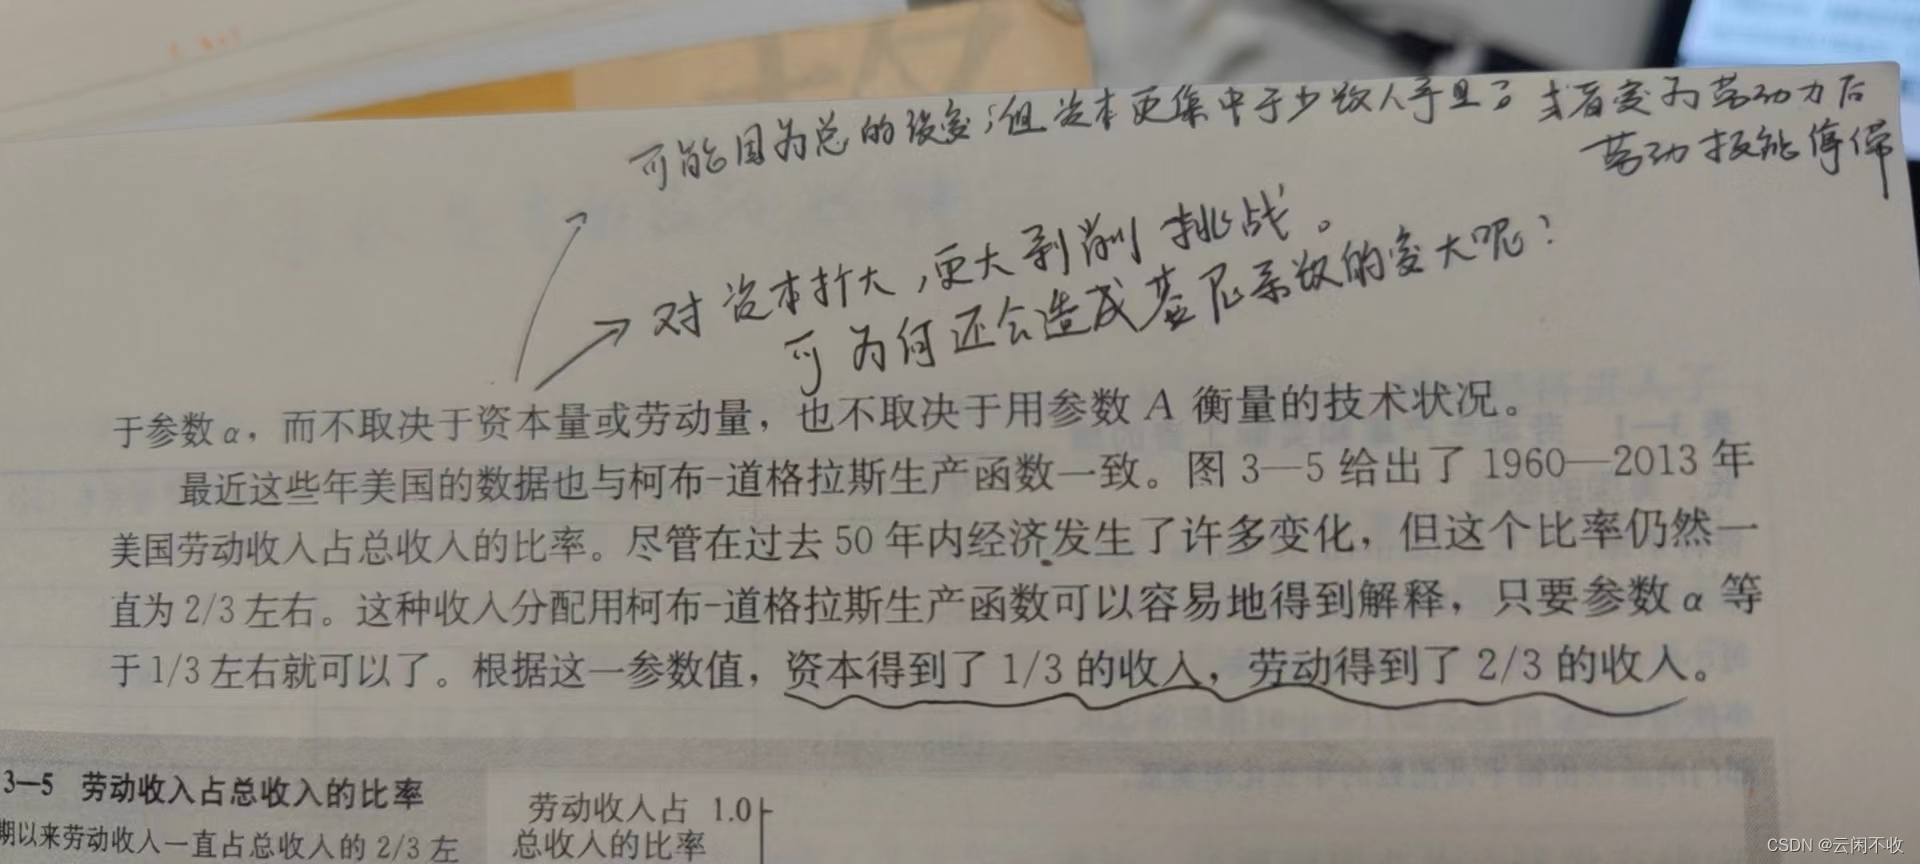 可能因为总的没变；但资本更集中于少数人手里了 或者变为劳动力后
劳动技能停滞
对资本扩大，更大剥削 挑战。
可为何还会造成基尼系数的变大呢？
于参数α，而不取决于资本量或劳动量，也不取决于用参数 A 衡量的技术状况。
最近这些年美国的数据也与柯布-道格拉斯生产函数一致。图 3—5 给出了 1960—2013 年
美国劳动收入占总收入的比率。尽管在过去 50 年内经济发生了许多变化，但这个比率仍然一
直为 2/3 左右。这种收入分配用柯布-道格拉斯生产函数可以容易地得到解释，只要参数 α 等
于 1/3 左右就可以了。根据这一参数值，资本得到了 1/3 的收入，劳动得到了 2/3 的收入。
3—5 劳动收入占总收入的比率
期以来劳动收入一直占总收入的 2/3 左
劳动收入占 1.0
总收入的比率
CSDN @云闲不收